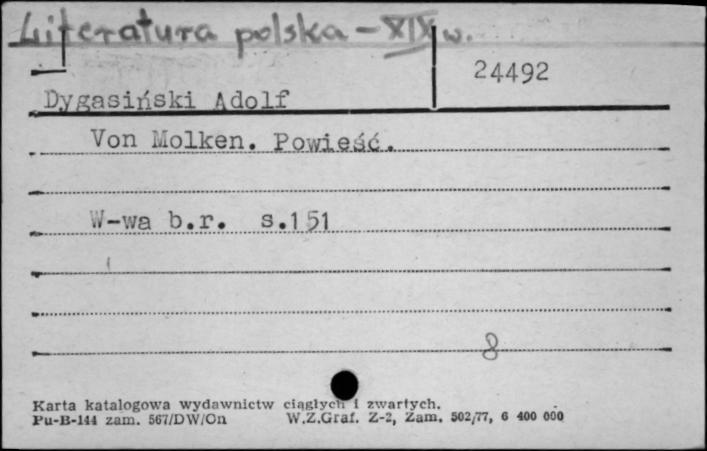 Literatura polska - XIX w.
24492
Dygasiński Adolf
Von Molken. Powieść.
W-wa b.r. s.151
8
Karta katalogowa wydawnictw ciągłych i zwartych.
Pu-B-144 zam. 567/DW/On W.Z.Graf. Z-2, Zam. 502/77, 6 400 000